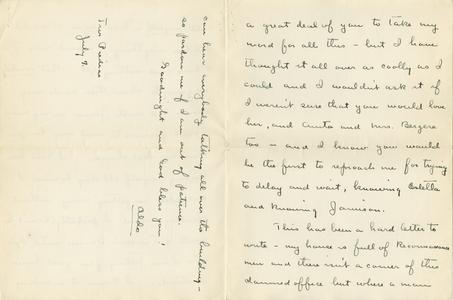 a great deal of you to take my
word for all this - but I have
thought it all over as coolly as I
could and I wouldn't ask it if
I weren't sure that you would love
her, and Anita and Mrs. Bergere
too - and I know you would
be the first to reproach me for trying
to delay and wait, knowing Estella
and knowing Jamison.
This has been a hard letter to
write - my house is full of Reconnaissance
men and there isn't a corner of this
damned office but where a man
can hear everybody talking all over the building -
so pardon me if I am out of patience.
Goodnight and God bless you!
Aldo
Tres Piedras
July 9.